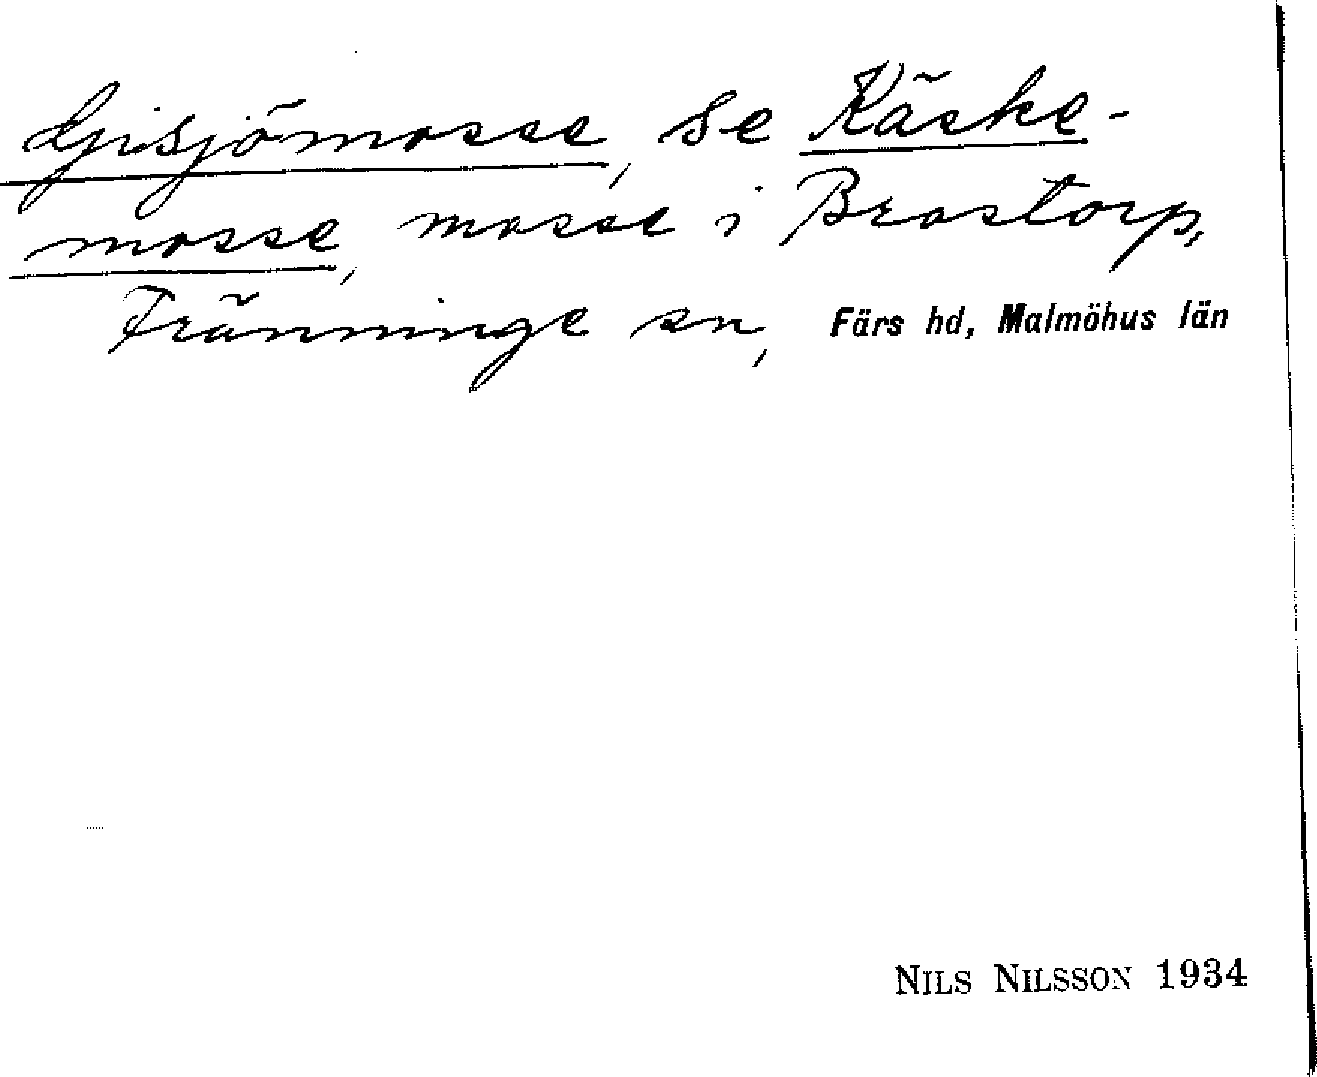 Gisjömosse, se Käske-
mosse, mosse i Brostorp,
Tränninge sn, Färs hd, Malmöhus län
NILS NILSSON 1934